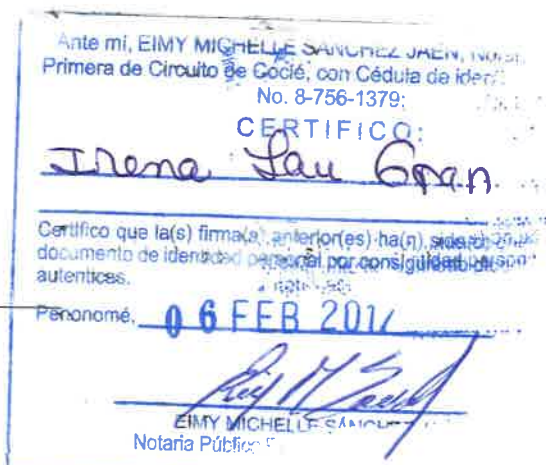 Ante mi, EIMY MICHELLE SANCHEZ JAEN,
Primera de Circuito de Coclé, con Cédula de
No. 8-756-1379:
CERTIFICO:
Irena Lau
Certifico que la(s) firma(s) anterior(es) ha(n) sido
documento de identidad personal por consiguiente
autenticas.
Penonomé, 06 FEB
EIMY MICHELLE SANCHEZ
Notaria Pública